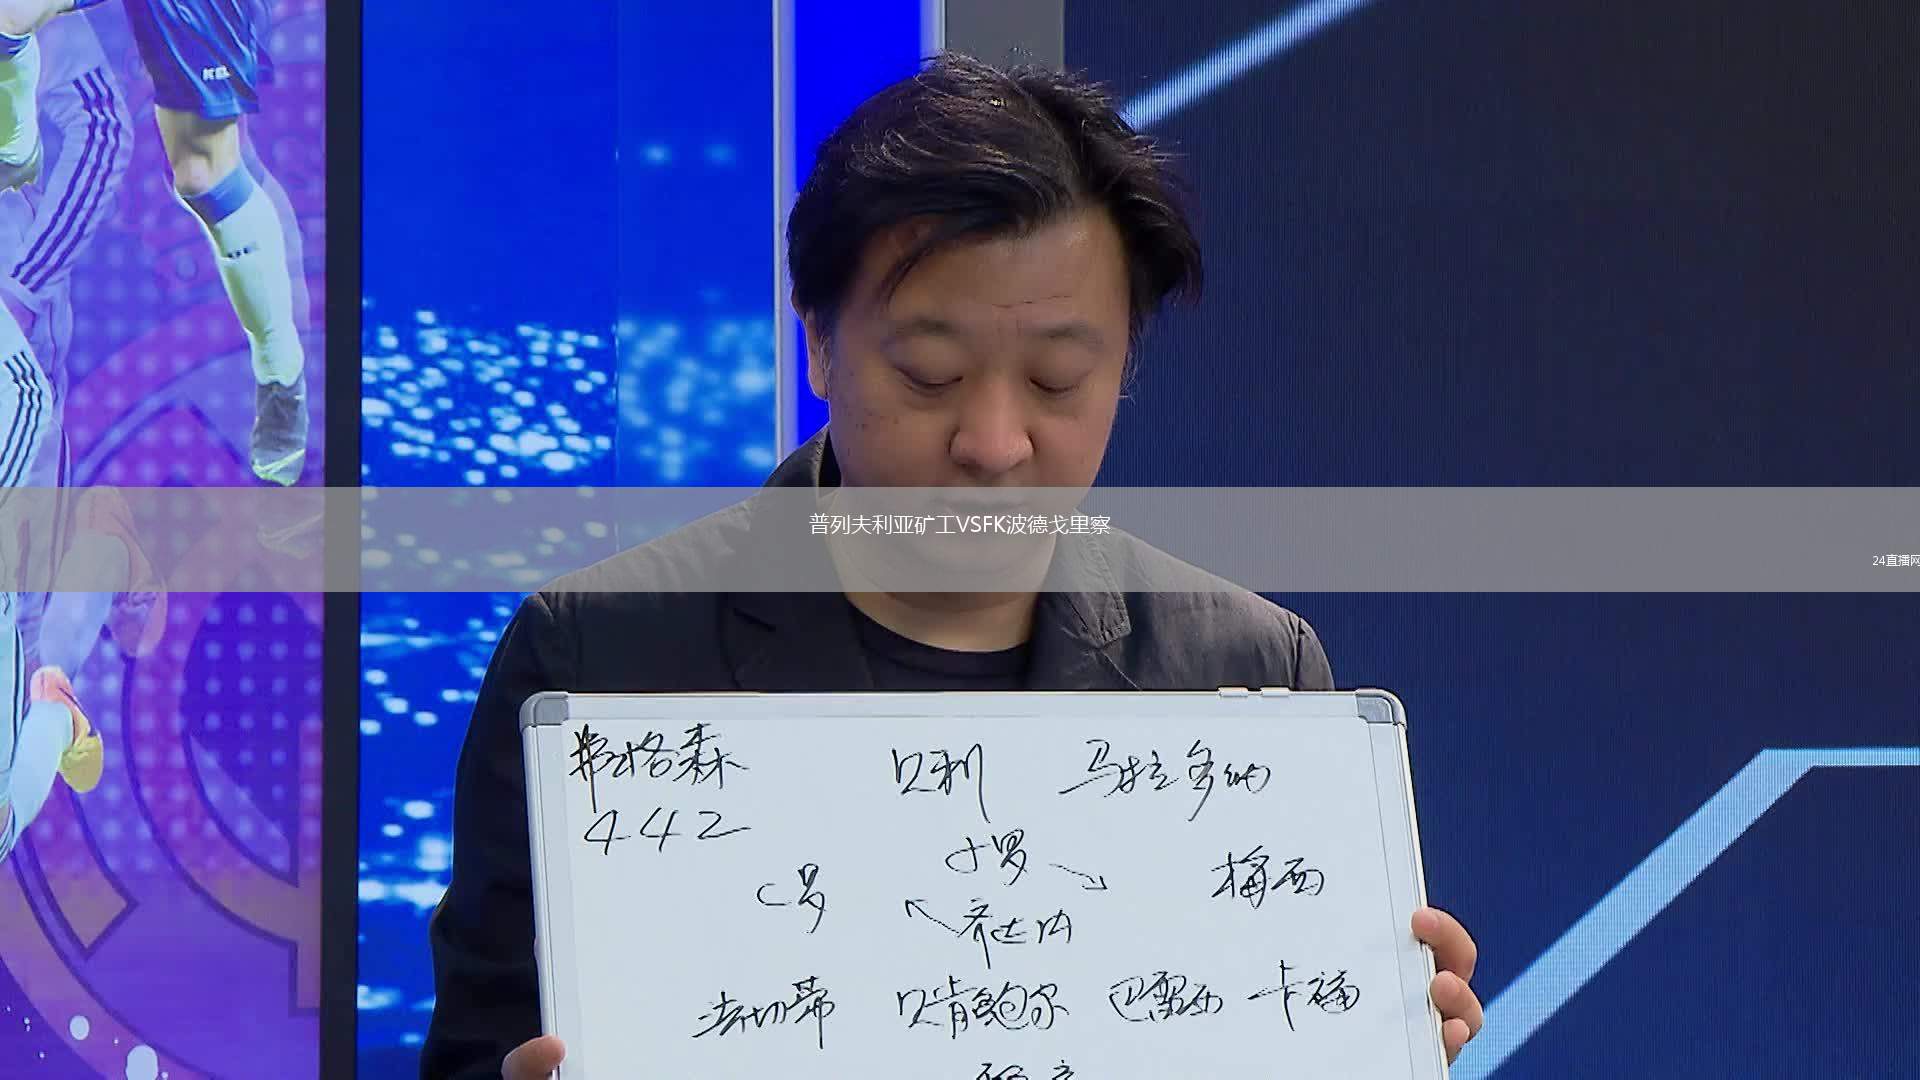 普列夫利亚矿工VSFK波德戈里察
24直播网
弗格森 贝利 马拉多纳
442
小罗
C罗 梅西
齐达内
法切蒂 贝肯鲍尔 巴雷西 卡福